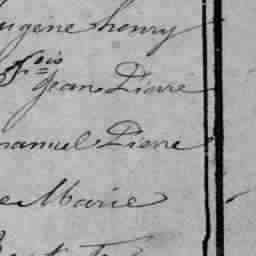 ugene henry
fois
Jean Piere
manuel Piere
e Marie